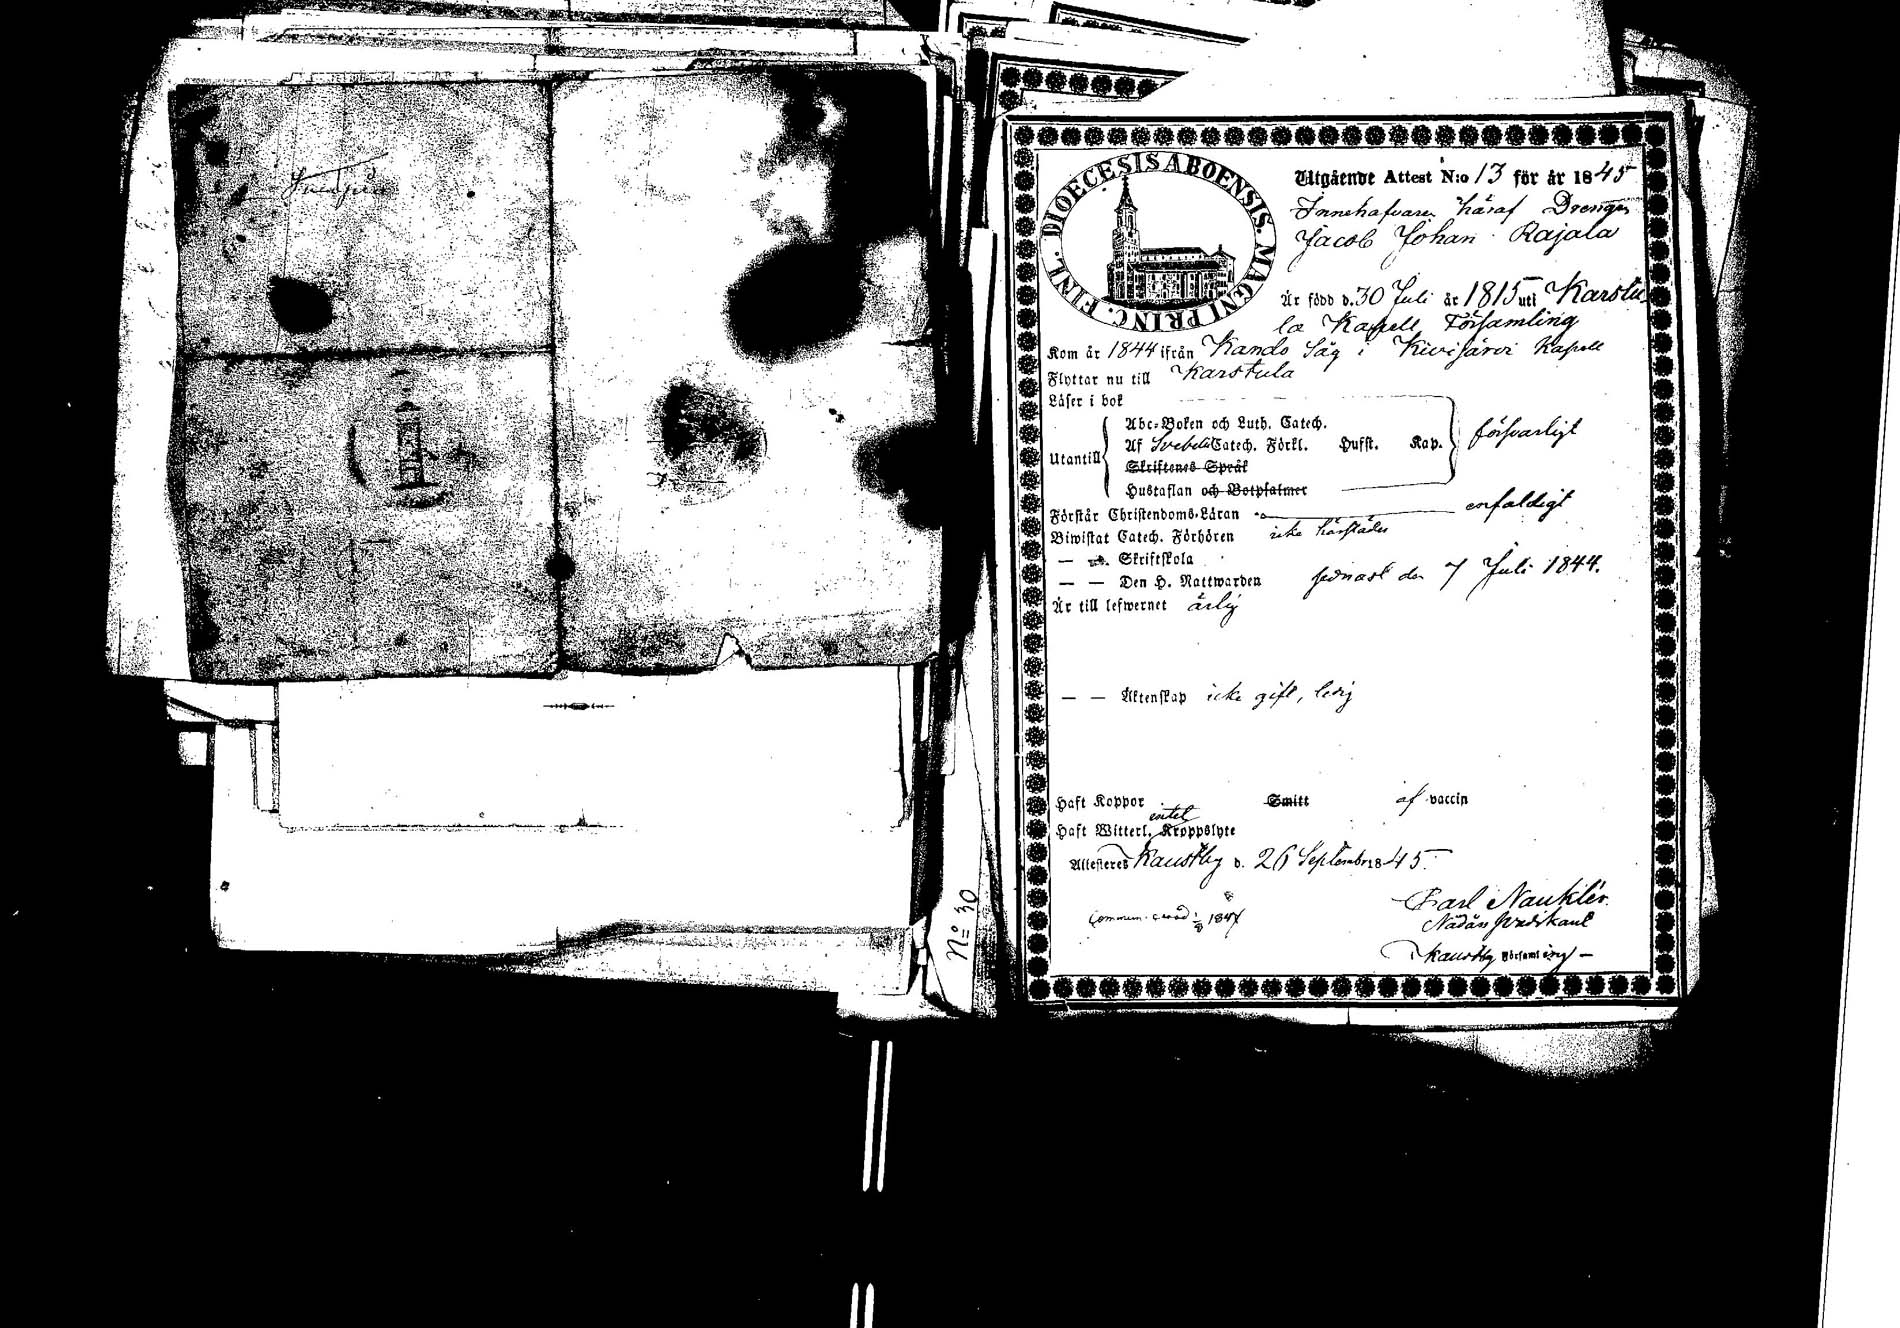 DIOECESIS ABOENSIS. MAGNI PRINC. FINL.
Utgående Attest N:o 13 för år 1845
Innehafvaren häraf Drengen
Jacob Johan Rajala
Är född d. 30 Juli år 1815 uti Karstu
la Kapell Församling
Kom år 1844 ifrån Kando Såg i Kivijärvi Kapell
Flyttar nu till Karstula
Läser i bok
Abc-Boken och Luth. Catech.
Af Svebelii Catech. Förkl. Hufst. Kap. försvarligt
Utantill
Skriftenes Språk
Hustaflan och Botpsalmer
Förstår Christendoms-Läran enfaldigt
Biwistat Catech. Förhören icke härstädes
— Skriftskola
— — Den H. Nattwarden senast den 7 Juli 1844.
Är till lefwernet ärlig
— — Äktenskap icke gift, ledig
Haft Koppor Smitt af vaccin
intet
Haft Witterl. Kroppslyte
Attesteras Kaustby d. 26 September 1845.
Carl Nauklér.
Nådårs Predikant
Kaustby Församling —
N:o 30